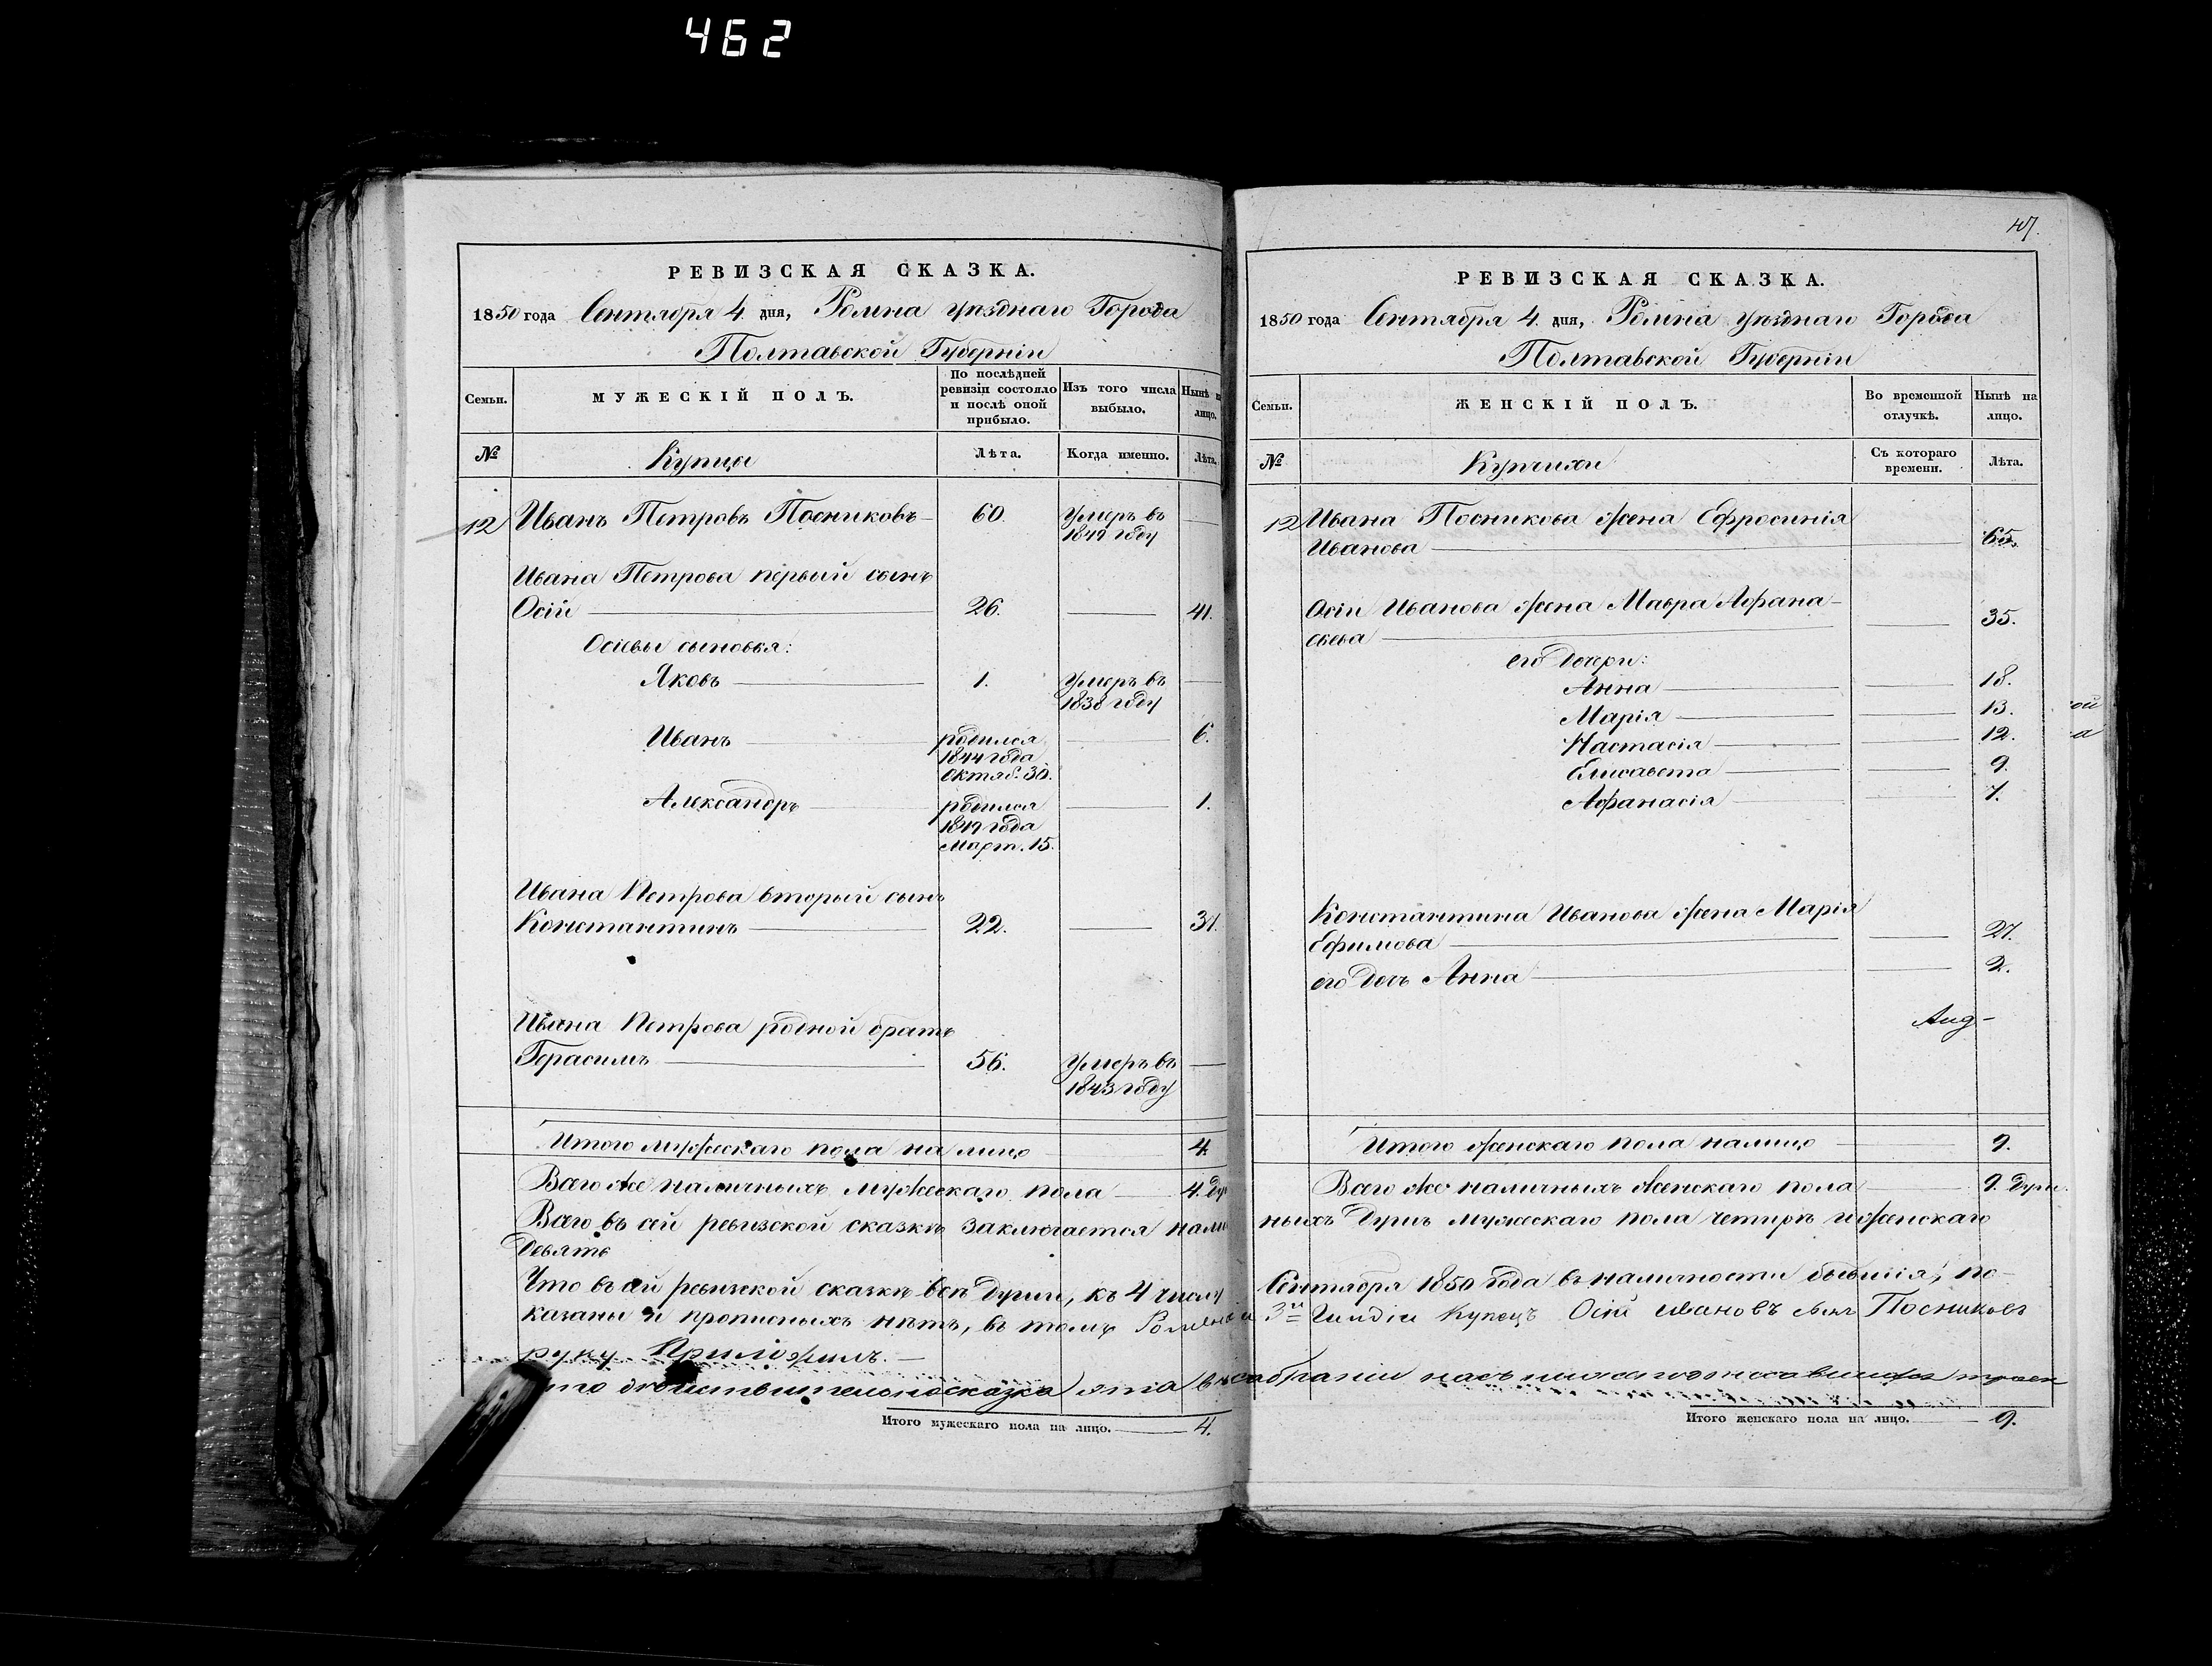 462
РЕВИЗСКАЯ СКАЗКА.
1850 года Сентября 4 дня, Ромна уѣзднаго Города
Полтавской Губерніи
Семьи.
МУЖЕСКІЙ ПОЛЪ.
По послѣдней ревизіи состояло и послѣ оной прибыло.
Изъ того числа выбыло.
Нынѣ на лицо.
№
Купцы
Лѣта.
Когда именно.
Лѣта.
12 Иванъ Петровъ Посниковъ 60. Умеръ въ
1849 году
Ивана Петрова первый сынъ
Осій 26. 41.
Осіевы сыновья:
Яковъ 1. Умеръ въ
1838 году
Иванъ родился 6.
1844 года
Октяб. 30.
Александръ родился 1.
1849 года
Март. 15.
Ивана Петрова вторый сынъ
Константинъ 22. 37.
Ивана Петрова родной братъ
Герасимъ 56. Умеръ въ
1843 году
Итого мужескаго пола на лицо 4.
Всего же наличныхъ мужескаго пола 4. ду
Всего въ сей ревизской сказкѣ заключается налич
Девять
Что въ сей ревизской сказкѣ всѣ души, къ 4 числу
казаны и прописныхъ нѣтъ, въ томъ Роменскій
руку Приложилъ.
сказка эта въ
Итого мужескаго пола на лицо. 4.
47.
РЕВИЗСКАЯ СКАЗКА.
1850 года Сентября 4 дня, Ромна уѣзднаго Города
Полтавской Губерніи
Семьи.
ЖЕНСКІЙ ПОЛЪ.
Во временной отлучкѣ.
Нынѣ на лицо.
№
Купчихи
Съ котораго времени.
Лѣта.
12 Ивана Посникова жена Ефросинія
Иванова 65.
Осіи Иванова жена Мавра Афана-
сьева 35.
его Дочери:
Анна 18.
Марія 13.
Настасія 12.
Елисавета 9.
Афанасія 7.
Константина Иванова жена Марія
Ефимова 27.
его Дочь Анна 2.
Итого женскаго пола налицо 9.
Всего же наличныхъ женскаго пола 9. Душ.
ныхъ Душъ мужескаго пола четыре и женскаго
Сентября 1850 года въ наличности бывшія, по-
3й Гильдіи Купецъ Осій Ивановъ сынъ Посниковъ
собраніи насъ
Итого женскаго пола на лицо. 9.